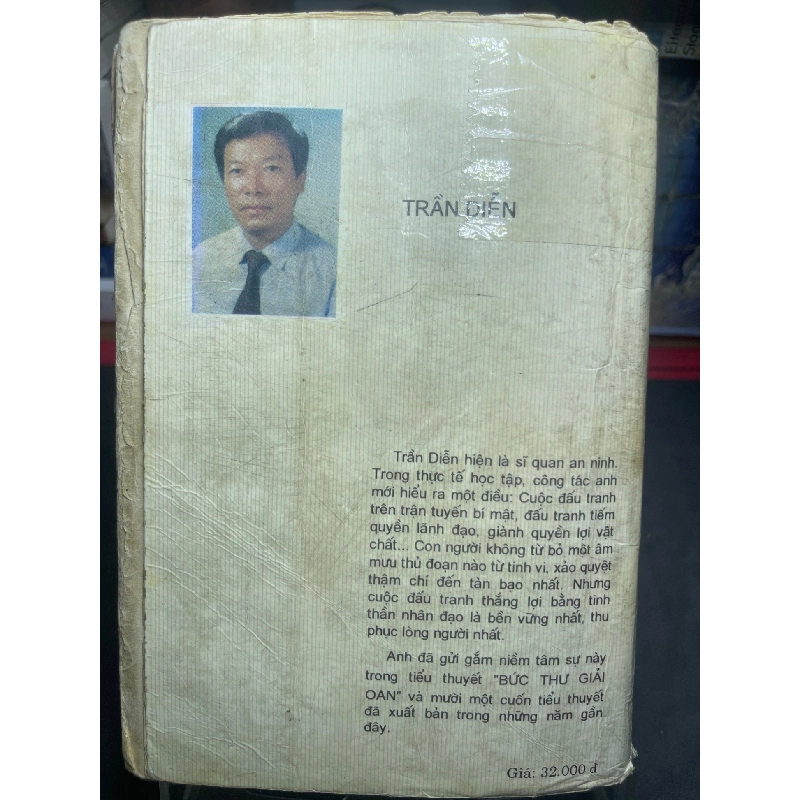 TRẦN DIỄN
Trần Diễn hiện là sĩ quan an ninh.
Trong thực tế học tập, công tác anh
mới hiểu ra một điều: Cuộc đấu tranh
trên trận tuyến bí mật, đấu tranh tiếm
quyền lãnh đạo, giành quyền lợi vật
chất... Con người không từ bỏ một âm
mưu thủ đoạn nào từ tinh vi, xảo quyệt
thậm chí đến tàn bạo nhất. Nhưng
cuộc đấu tranh thắng lợi bằng tinh
thần nhân đạo là bền vững nhất, thu
phục lòng người nhất.
Anh đã gửi gắm niềm tâm sự này
trong tiểu thuyết "BỨC THƯ GIẢI
OAN" và mười một cuốn tiểu thuyết
đã xuất bản trong những năm gần
đây.
Giá: 32.000 đ